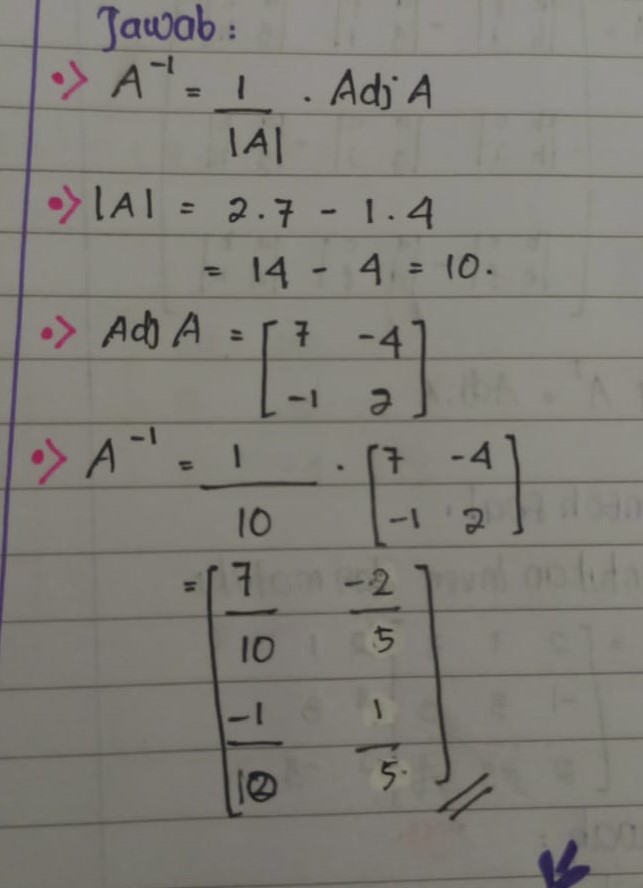 Jawab :
•> A⁻¹ = 1/|A| . Adj A
•> |A| = 2.7 - 1.4
= 14 - 4 = 10.
•> Adj A = [7 -4
-1 2]
•> A⁻¹ = 1/10 . [7 -4
-1 2]
= [7/10 -2/5
-1/10 1/5.]